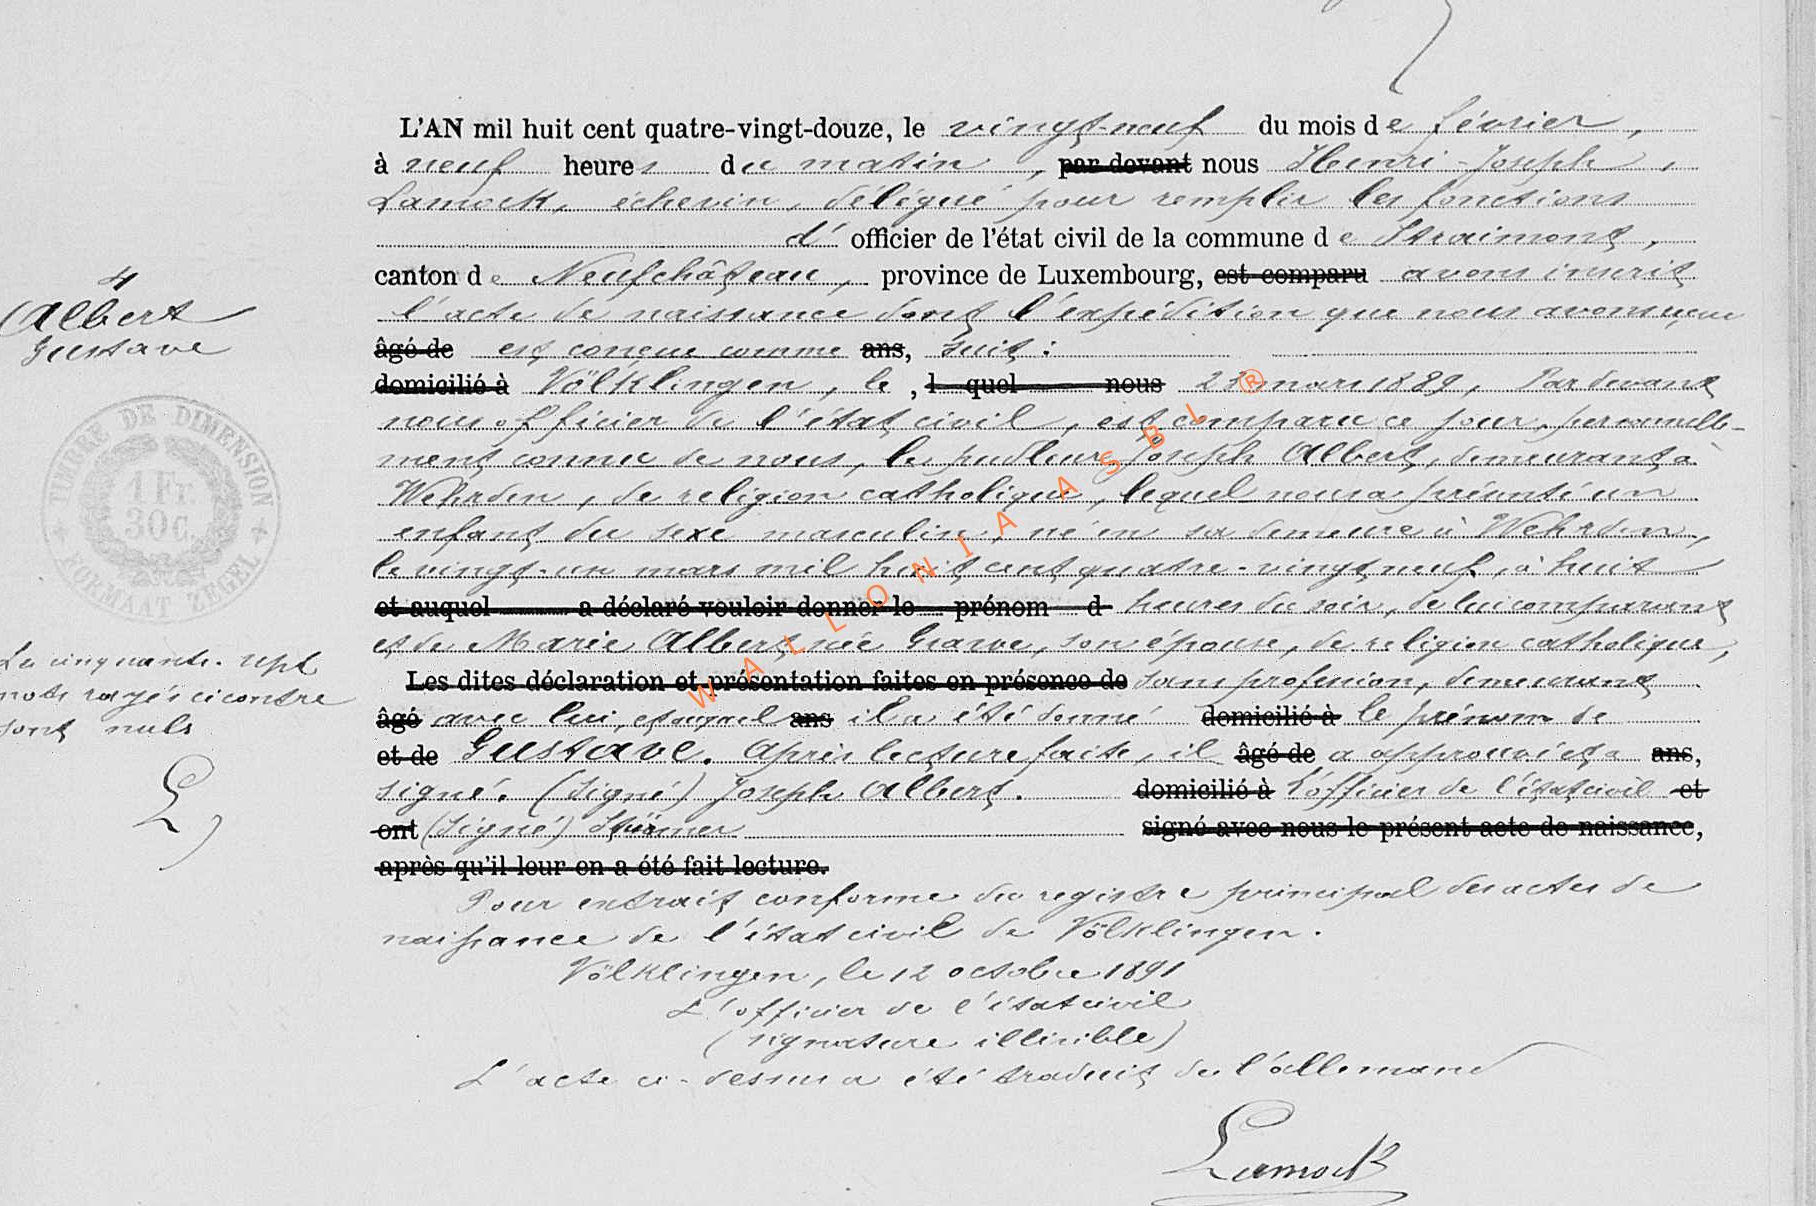 L'AN mil huit cent quatre-vingt-douze, le vingt-neuf du mois de février,
à neuf heures du matin, par devant nous Henri-Joseph,
Lamock, échevin, délégué pour remplir les fonctions
d' officier de l'état civil de la commune de Straimont,
canton de Neufchâteau, province de Luxembourg, est comparu avons inscrit
4
Albert
Gustave
l'acte de naissance dont l'expédition que nous avons reçue
âgé de est conçue comme ans, suit :
domicilié à Völklingen, le , l quel nous 23 mars 1889, Par devant
nous officier de l'état civil, est comparu ce jour, personnelle-
ment connu de nous, le pudleur Joseph Albert, demeurant à
Wehrden, de religion catholique, lequel nous a présenté un
enfant du sexe masculin, né en sa demeure à Wehrden,
le vingt-un mars mil huit cent quatre-vingt neuf, à huit
et auquel a déclaré vouloir donner le prénom d heures du soir, de lui comparant
et de Marie Albert, née Grawe, son épouse, de religion catholique,
Les dites déclaration et présentation faites en présence de sans profession, demeurant
âgé avec lui, et auquel ans il a été donné domicilié à le prénom de
et de Gustave. Après lecture faite, il âgé de a approuvé et a ans,
signé. (Signé) Joseph Albert. domicilié à L'officier de l'état civil et
ont (Signé) Stürmer signé avec nous le présent acte de naissance,
après qu'il leur en a été fait lecture.
TIMBRE DE DIMENSION
1 Fr.
30 C.
FORMAAT ZEGEL
Les cinquante-sept
mots rayés ci contre
sont nuls
L
Pour extrait conforme du registre principal des actes de
naissance de l'état civil de Völklingen.
Völklingen, le 12 octobre 1891
L'officier de l'état civil
(signature illisible)
L'acte ci-dessus a été traduit de l'allemand
Lamock
WALLONIA ASBL ®